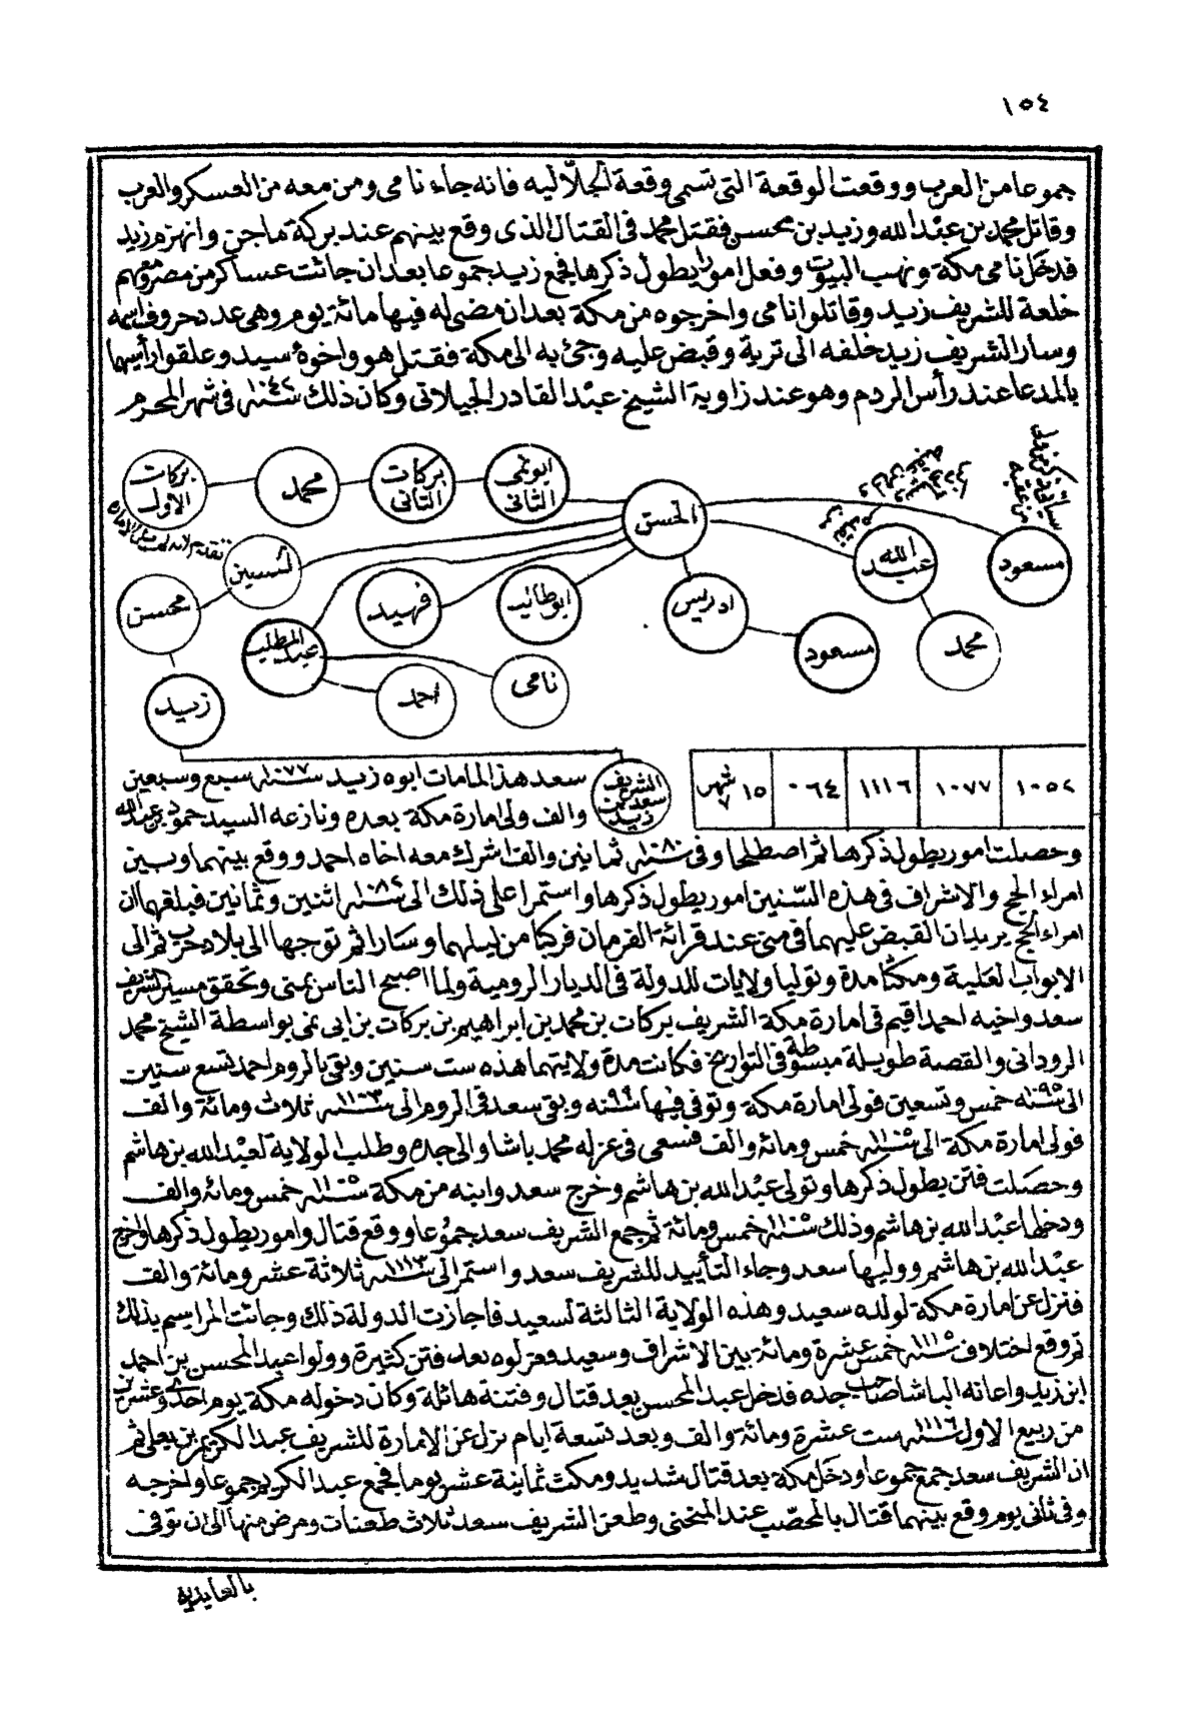 ١٥٤
جموعا من العرب ووقعت الوقعة التى تسمى وقعة الجلاّليه فانه جاء نامى ومن معه من العسكر والعرب
وقاتل محمد بن عبد الله وزيد بن محسن فقتل محمد فى القتال الذى وقع بينهم عند بركة ماجن وانهزم زيد
فدخل نامى مكة ونهب البيوت وفعل امورا يطول ذكرها فجمع زيد جموعا بعد ان جائت عساكر من مصر ومعهم
خلعة للشريف زيد وقاتلوا نامى واخرجوه من مكة بعد ان مضى له فيها مائة يوم وهى عدد حروف اسمه
وسار الشريف زيد خلفه الى تربة وقبض عليه وجئ به الى مكة فقتل هو واخوه سيد وعلقوا رأسيهما
بالمدعا عند رأس الردم وهو عند زاوية الشيخ عبد القادر الجيلاتى وكان ذلك سنة ١٠٤٢ فى شهر المحرم
بركات الاول
محمد
بركات الثانى
ابو نمى الثانى
الحسن
عبد الله
مسعود
محسن
فهيد
ابو طالب
ادريس
مسعود
محمد
عبد المطلب
احمد
نامى
زيد
١٠٥٢ ١٠٧٧ ١١١٦ ٠٦٤ ١٥ شهر ٧
الشريف سعد بن زيد
سعد هذا لما مات ابوه زيد سنة ١٠٧٧ سبع وسبعين
والف ولى امارة مكة بعده ونازعه السيد حمود بن عبد الله
وحصلت امور يطول ذكرها ثم اصطلحا وفى سنة ١٠٨٠ ثمانين والف اشرك معه اخاه احمد ووقع بينهما وبين
امراء الحج والاشراف فى هذه السّنين امور يطول ذكرها واستمرا على ذلك الى سنة ١٠٨٢ اثنين وثمانين فبلغهما ان
امراء الحج يريدان القبض عليهما فى منى عند قرائة الفرمان فركبا من ليلهما وسارا ثم توجها الى بلاد حرب ثم الى
الابواب العلية ومكثا مدة وتوليا ولايات للدولة فى الديار الرومية ولما اصبح الناس بمنى وتحقق مسير الشريف
سعد واخيه احمد اقيم فى امارة مكة الشريف بركات بن محمد بن ابراهيم بن بركات بن ابى نمى بواسطة الشيخ محمد
الرودانى والقصة طويلة مبسوطة فى التواريخ فكانت مدة ولايتهما هذه ست سنين وبقى بالروم احمد تسع سنين
الى سنة ١٠٩٥ خمس وتسعين فولى امارة مكة وتوفى فيها سنة ٩٩ وبقى سعد فى الروم الى سنة ١١٠٣ ثلاث ومائة والف
فولى امارة مكة الى سنة ١١٠٥ خمس ومائة والف فسعى فى عزله محمد باشا والى جده وطلب الولاية لعبد الله بن هاشم
وحصلت فتن يطول ذكرها وتولى عبد الله بن هاشم وخرج سعد وابنه من مكة سنة ١١٠٥ خمس ومائة والف
ودخلها عبد الله بن هاشم وذلك سنة ١١٠٥ خمس ومائة ثم جمع الشريف سعد جموعا ووقع قتال وامور يطول ذكرها واخرج
عبد الله بن هاشم ووليها سعد وجاء التأييد للشريف سعد واستمر الى سنة ١١١٣ ثلاثة عشر ومائة والف
فنزل عن امارة مكة لولده سعيد وهذه الولاية الثالثة لسعيد فاجازت الدولة ذلك وجائت المراسم بذلك
ثم وقع اختلاف سنة ١١١٥ خمس عشرة ومائة بين الاشراف وسعيد وعزلوه بعد فتن كثيرة وولوا عبد المحسن بن احمد
ابن زيد واعانه الباشا صاحب جده فدخل عبد المحسن بعد قتال وفتنة هائلة وكان دخوله مكة يوم احدى وعشرين
من ربيع الاول سنة ١١١٦ ست عشرة ومائة والف وبعد تسعة ايام نزل عن الامارة للشريف عبد الكريم بن يعلى ثم
ان الشريف سعد جمع جموعا ودخل مكة بعد قتال شديد ومكث ثمانية عشر يوما فجمع عبد الكريم جموعا واخرجه
وفى ثانى يوم وقع بينهما قتال بالمحصّب عند المنحنى وطعن الشريف سعد ثلاث طعنات ومرض منها الى ان توفى
بالعابدية